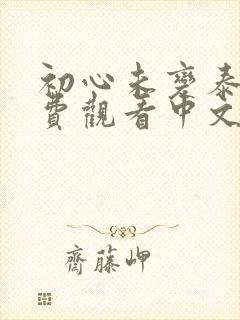 初心未变泰
費觀看中文
齋藤岬